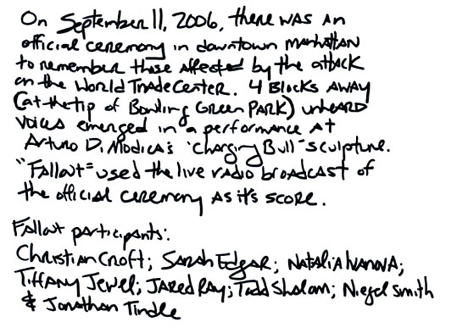 On September 11, 2006, there was an
official ceremony in downtown Manhattan
to remember those affected by the attack
on the World Trade Center. 4 Blocks away
(at the tip of Bowling Green Park) unheard
voices emerged in a performance at
Arturo Di Modica's "Charging Bull" sculpture.
"Fallout" used the live radio broadcast of
the official ceremony as it's score.
Fallout participants:
Christian Croft; Sarah Edgar; Natalia Ivanova;
Tiffany Jewel; Jared Ray; Todd Shalom; Niegel Smith
& Jonathan Tindle